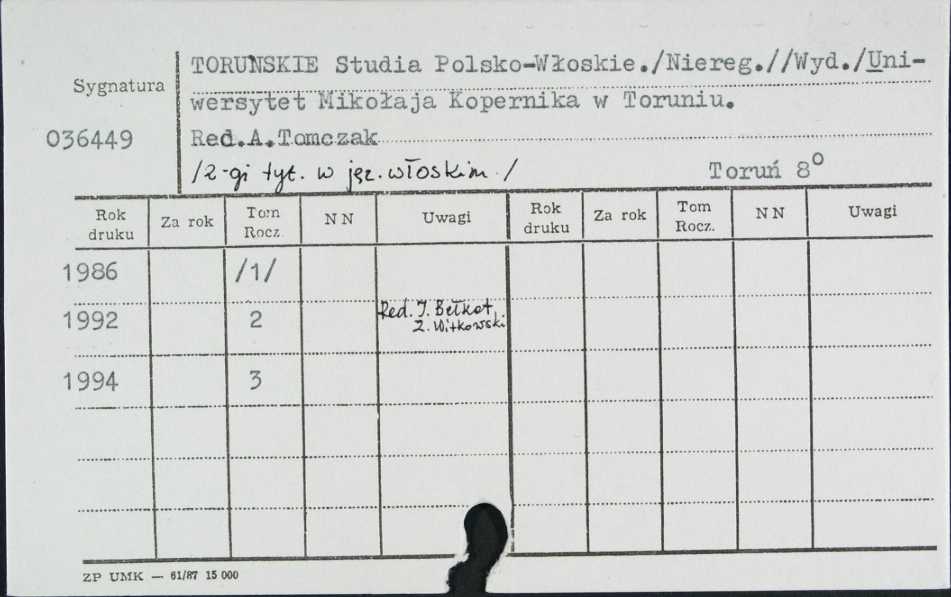 TORUŃSKIE Studia Polsko-Włoskie./Niereg.//Wyd./Uni-
Sygnatura
wersytet Mikołaja Kopernika w Toruniu.
036449
Red.A.Tomczak
/2-gi tyt. w jęz. włoskim./ Toruń 8°
Rok druku Za rok Tom Rocz. NN Uwagi Rok druku Za rok Tom Rocz. NN Uwagi
1986 /1/
1992 2 Red. J. Bełkot, Z. Witkowski
1994 3
ZP UMK — 61/87 15 000